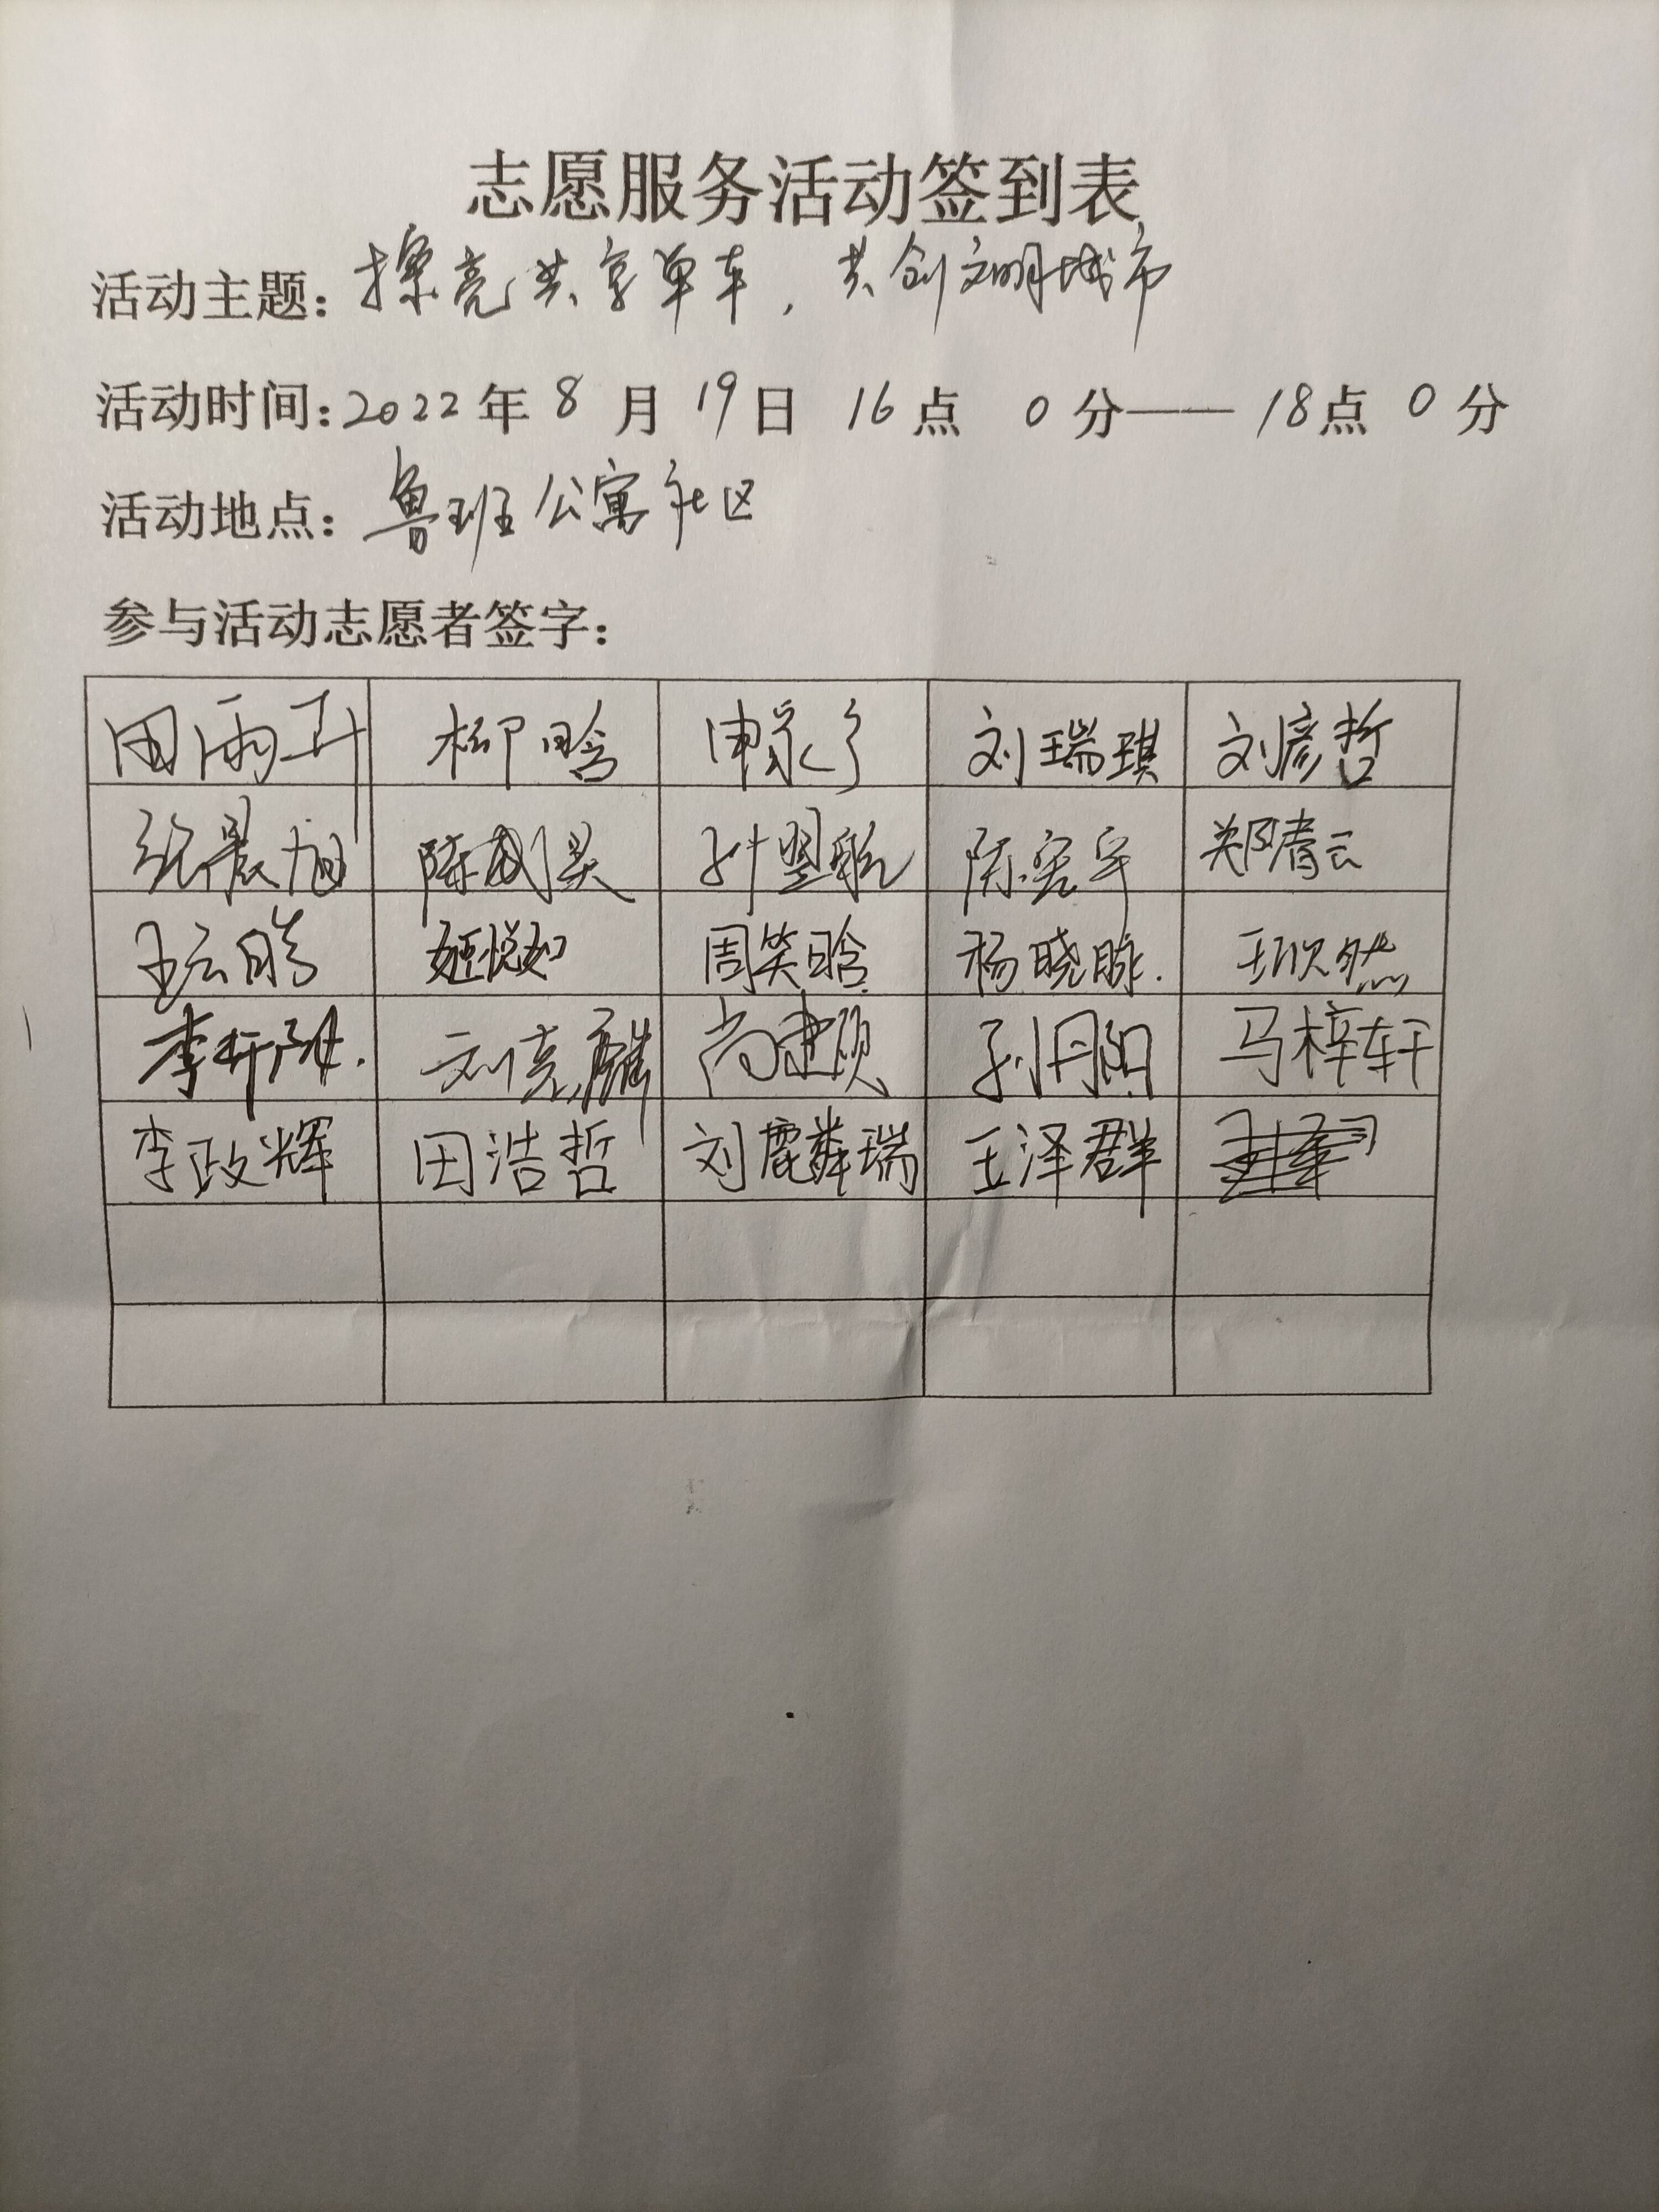 志愿服务活动签到表
活动主题：擦亮共享单车，共创文明城市
活动时间：2022年 8 月 19日 16点 0分——18点 0分
活动地点：鲁班公寓社区
参与活动志愿者签字：
田雨 柳晗 申 刘瑞琪 刘彦哲
张晨旭 陈 陈 郑春云
王云皓 姬悦如 周笑晗 杨晓 王欣然
李 刘亮麟 尚建硕 孙丹阳 马梓轩
李政辉 田浩哲 刘麒麟瑞 王泽群